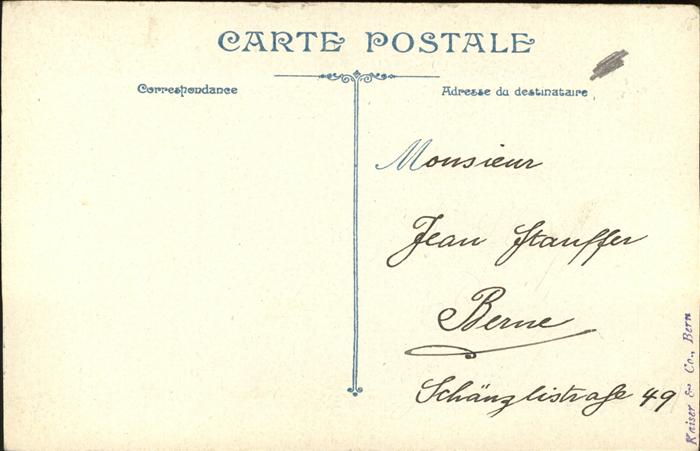 CARTE POSTALE
Correspondance
Adresse du destinataire
Monsieur
Jean Stauffer
Berne
Schänzlistraße 49
Kaiser & Co., Bern